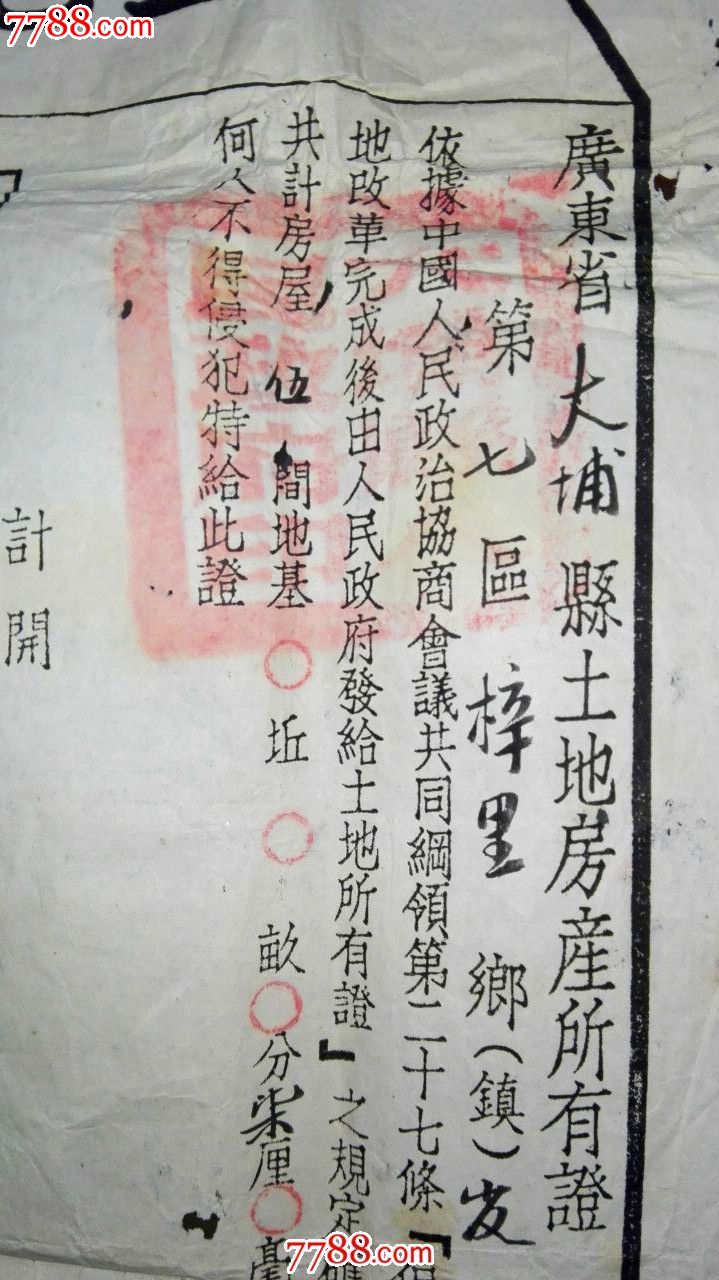 7788.com
廣東省大埔縣土地房產所有證
第七區梓里鄉(鎮)
依據中國人民政治協商會議共同綱領第二十七條『
地改革完成後由人民政府發給土地所有證』之規定確
共計房屋伍間地基〇坵〇畝〇分柒厘〇毫
何人不得侵犯特給此證
計開
7788.com